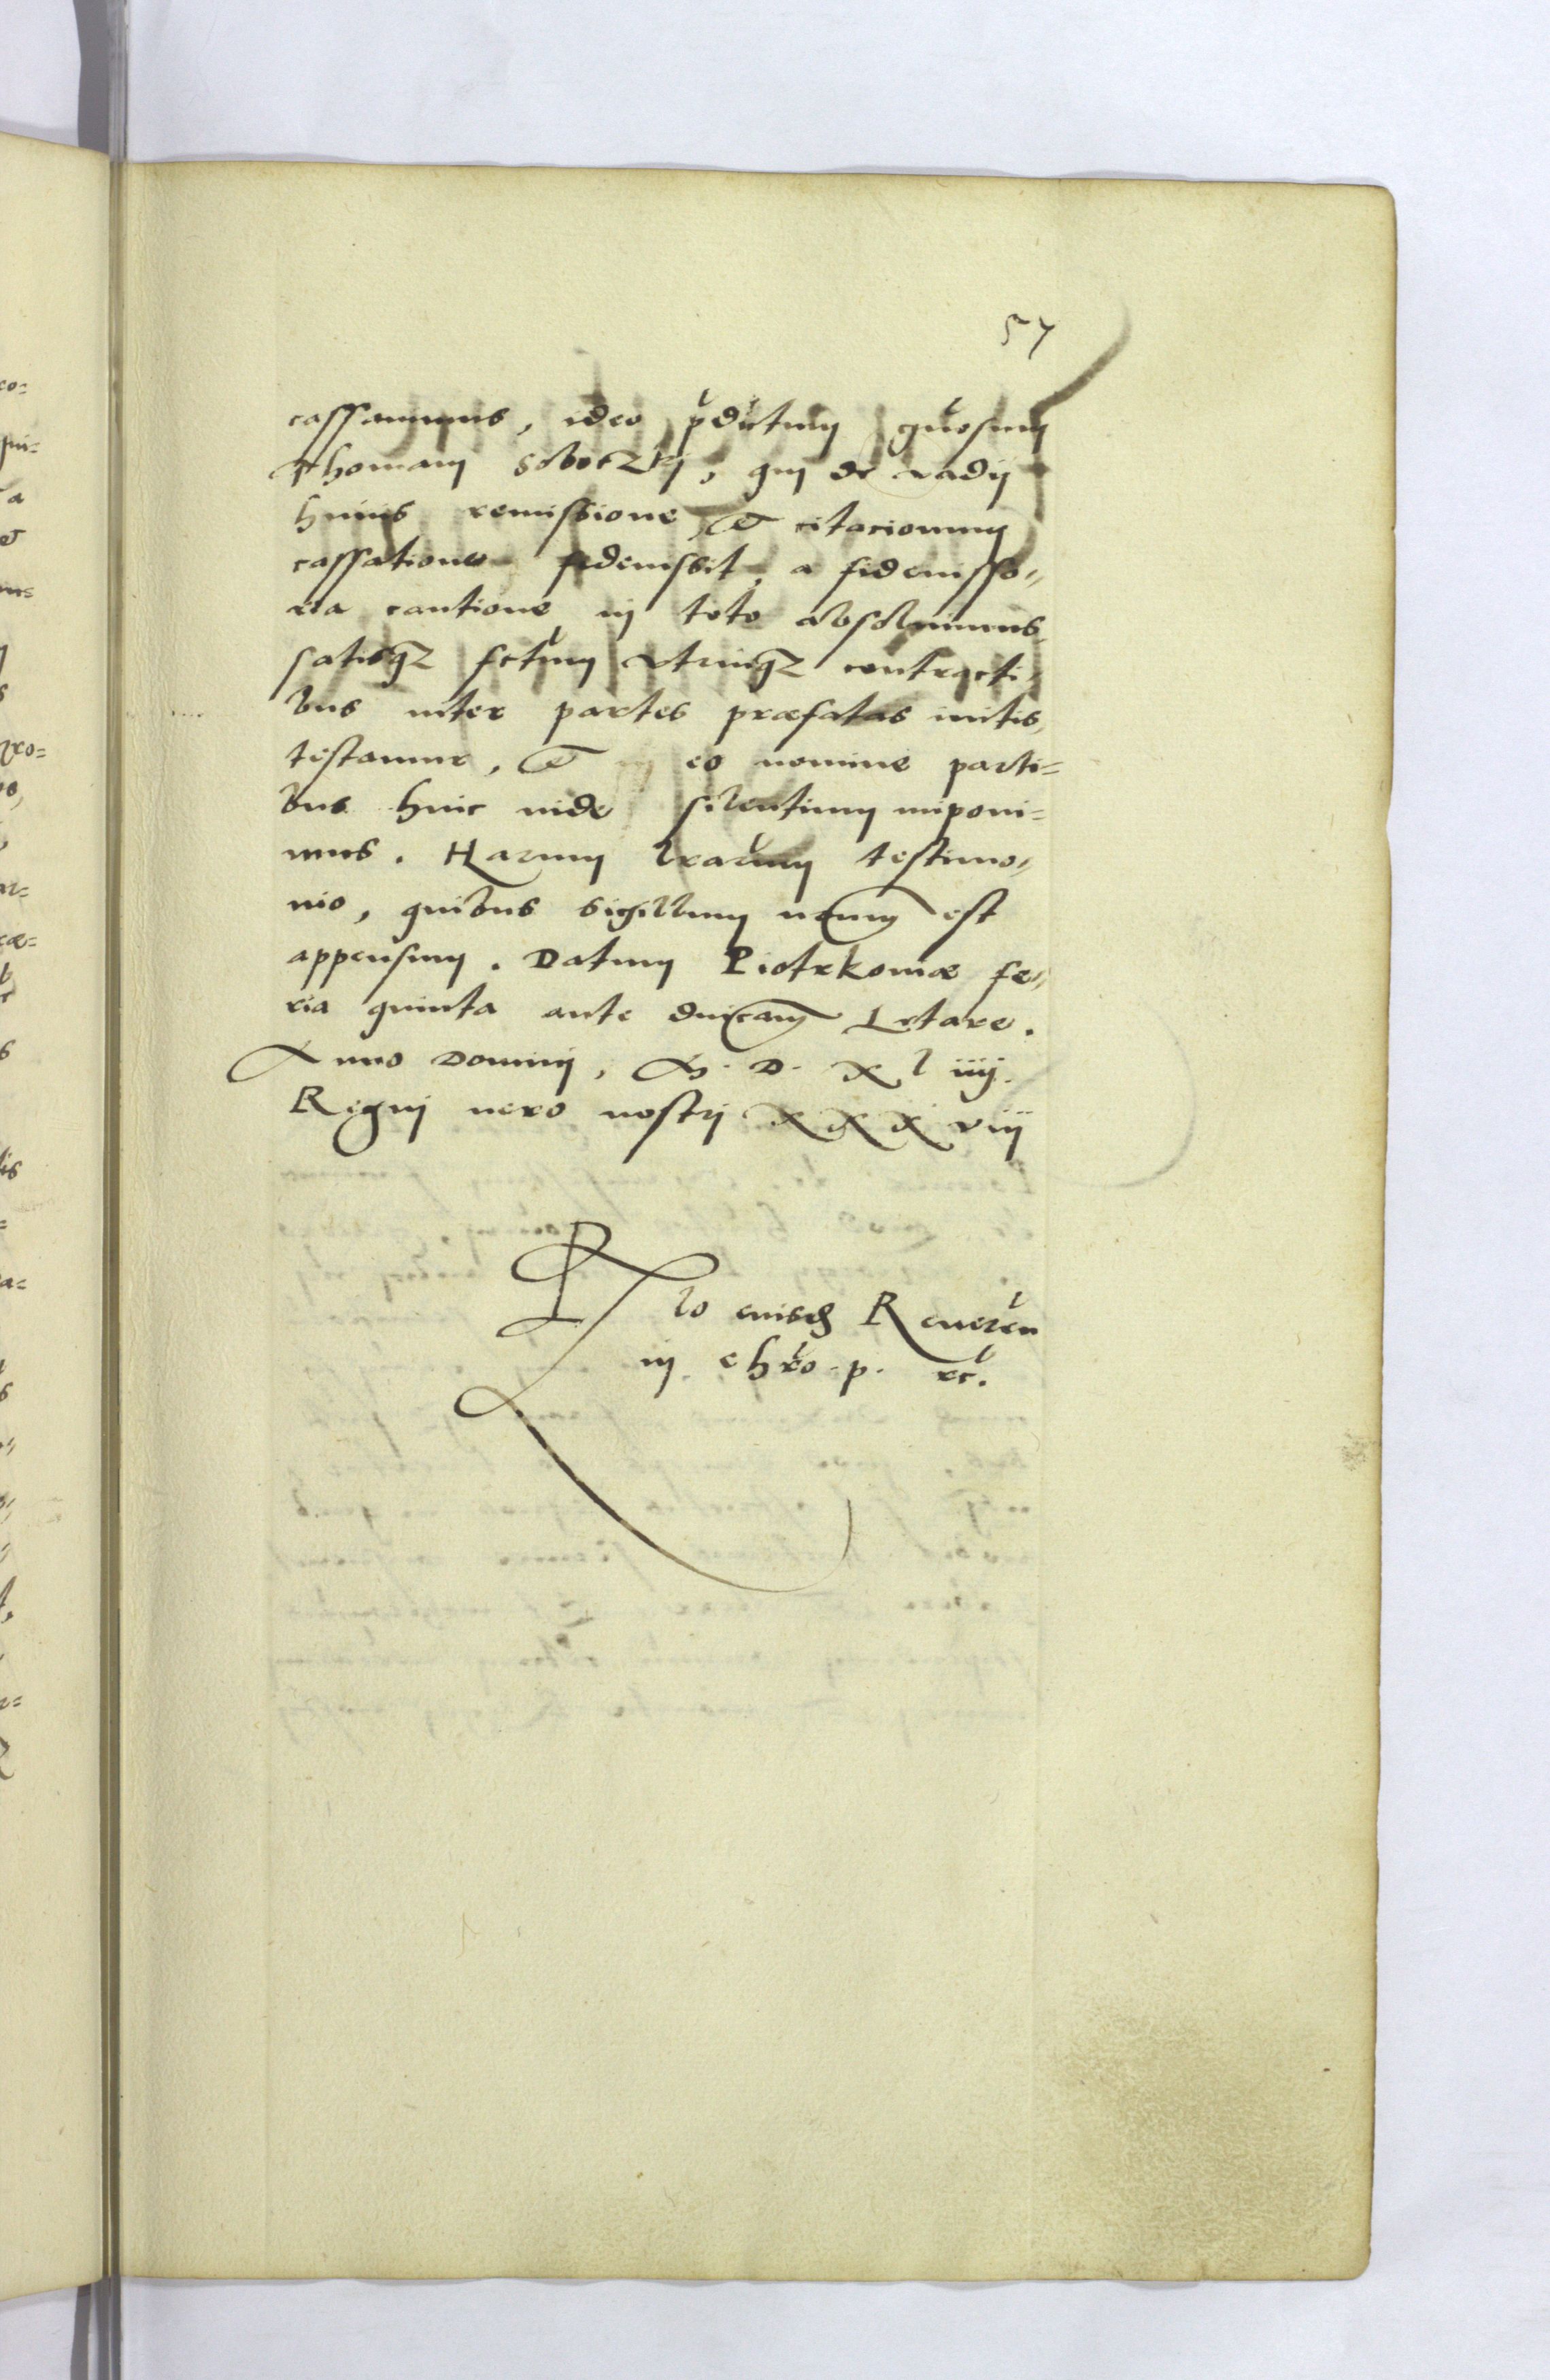 57
cassamus, ideo pdictum gnosum
Thomam Soboczkj, qui de vadij
huius remissione, et citacionum
cassatione fideiussit, a fideiusso=
ria cautione in toto absoluimus,
satisqz fctum utrinqz contracti=
bus inter partes præfatas initis,
testamur, et eo nomine parti=
bus hinc inde silentium imponi=
mus. Harum lrarum testimo=
nio, quibus sigillum nrum est
appensum. Datum Piotrkouiæ fe=
ria quinta ante dnicam Letare.
Anno Dominj, M. D. XL iiij.
Regnj uero nostrj XXX viij
Rlo eiusd Reueren
in chro. p. rc.